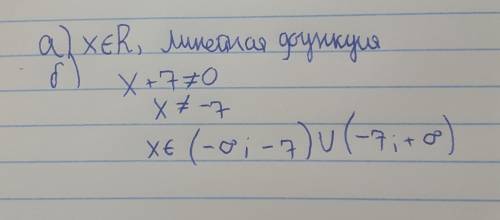 а) x∈R, линейная функция
б)
x + 7 ≠ 0
x ≠ -7
x∈ (-∞; -7) ∪ (-7; +∞)